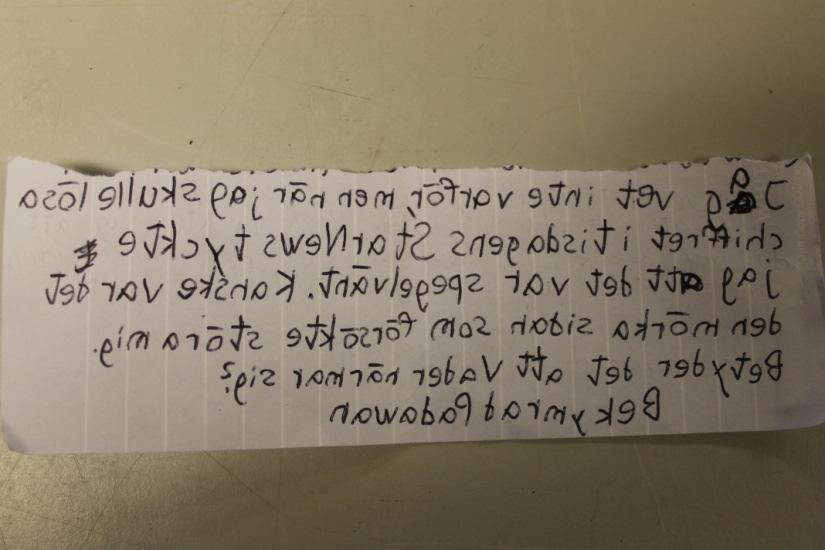 Jag vet inte varför, men när jag skulle lösa
chiffret i tisdagens StarNews tyckte
jag att det var spegelvänt. Kanske var det
den mörka sidan som försökte störa mig.
Betyder det att Vader närmar sig?
Bekymrad Padawan